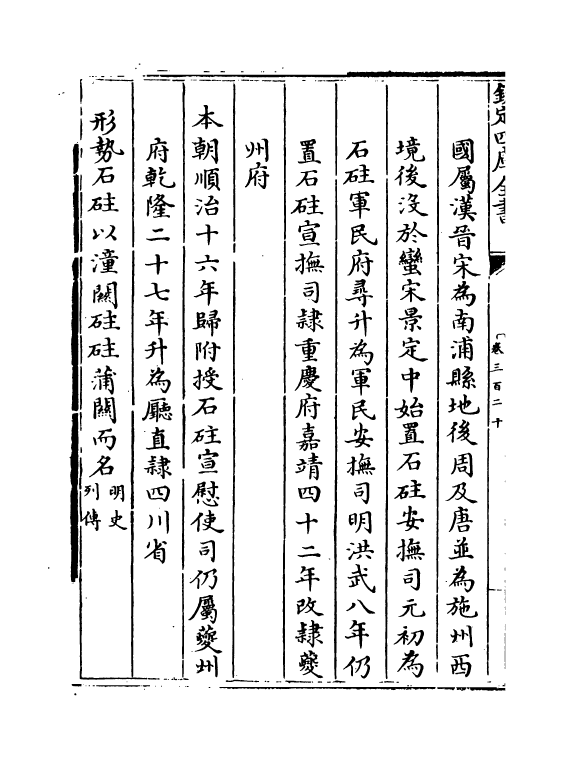 欽定四庫全書
卷三百二十
國屬漢晉宋為南浦縣地後周及唐並為施州西
境後沒於蠻宋景定中始置石砫安撫司元初為
石砫軍民府尋升為軍民安撫司明洪武八年仍
置石砫宣撫司隸重慶府嘉靖四十二年改隸夔
州府
本朝順治十六年歸附授石砫宣慰使司仍屬夔州
府乾隆二十七年升為廳直隸四川省
形勢石砫以潼關砫砫蒲關而名明史
列傳